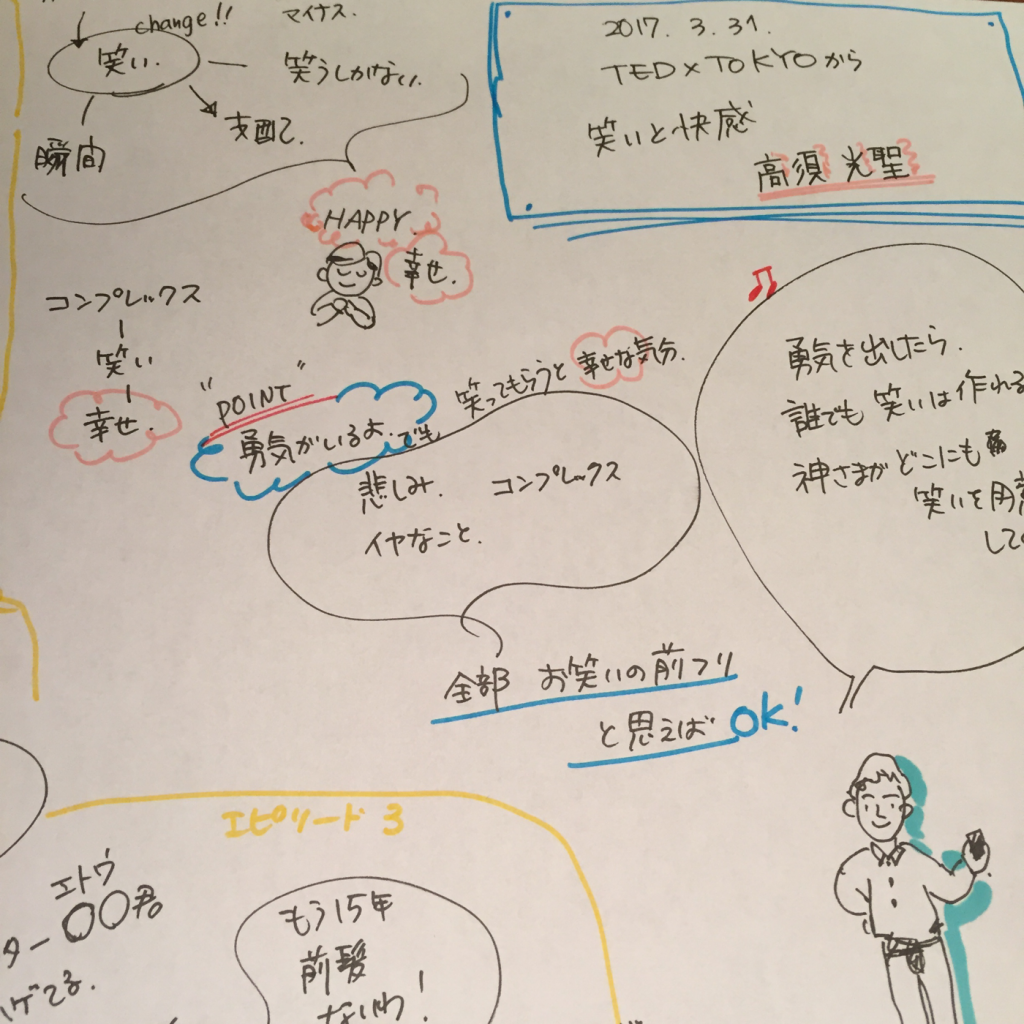 change!!
マイナス.
笑い.
笑うしかない.
瞬間
支配し.
2017. 3. 31.
TED×TOKYOから
笑いと快感
高須 光聖
HAPPY.
幸せ.
コンプレックス
笑い
幸せ.
"POINT"
勇気がいるよ.でも
笑ってもらうと 幸せな気分.
悲しみ. コンプレックス
イヤなこと.
全部 お笑いの前フリ
と思えば OK!
勇気を出したら.
誰でも 笑いは作れる
神さまが どこにも
笑いを用意
して
エピソード 3
エトウ
ター〇〇君
ハゲてる.
もう15年
前髪
ないわ!